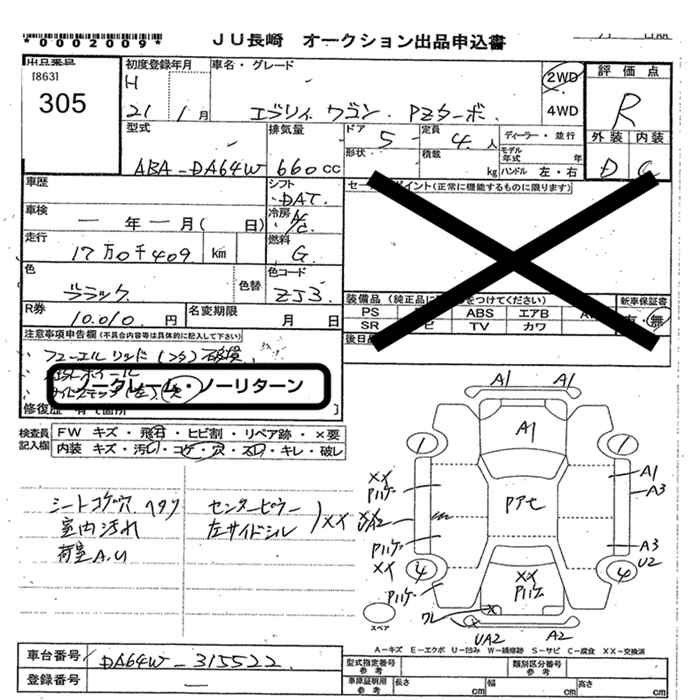 *0002009*
JU長崎 オークション出品申込書
出品番号
[863]
305
初度登録年月
H
21 1月
車名・グレード
エブリィ ワゴン PZターボ
2WD
4WD
評価点
R
外装 内装
D C
型式
ABA-DA64W
排気量
660cc
ドア
5
形状
定員
4人
積載
kg
ディーラー・並行
モデル年式 年
ハンドル 左・右
車歴
シフト
DAT
セールスポイント(正常に機能するものに限ります)
車検
年 月( 日)
冷房
A/C
走行
17万0千409 km
燃料
G
色
ブラック
色替
色コード
ZJ3
装備品 (純正品に をつけてください)
新車保証書
有・無
PS ABS エアB
SR TV カワ
後日品
R券
10,010円
名変期限
月 日
注意事項申告欄(不具合内容等は具体的に記入して下さい)
フューエルリッド(フタ)破損
ノークレーム・ノーリターン
修復歴 有て箇所
検査員記入欄
FW キズ・飛石・ヒビ割・リペア跡・×要
内装 キズ・汚れ・コゲ・穴・スレ・キレ・破レ
シートコゲ穴 ヘタリ
室内汚れ
荷室A.U
センターピラー
左サイドシル
XX
A1 A1
A1
1 1
XX
Pハゲ
A1
A3
Pアセ
XX
UA2
Pハゲ
XX
A3
U2
4 4
XX
Pハゲ
Pハゲ
ワレ
UA2 A2
スペア
A-キズ E-エクボ U-凹み W-補修跡 S-サビ C-腐食 XX-交換済
車台番号
DA64W-315522
登録番号
型式指定番号
参考
類別区分番号
参考
車庫証明用
参考
長さ cm
幅 cm
高さ cm